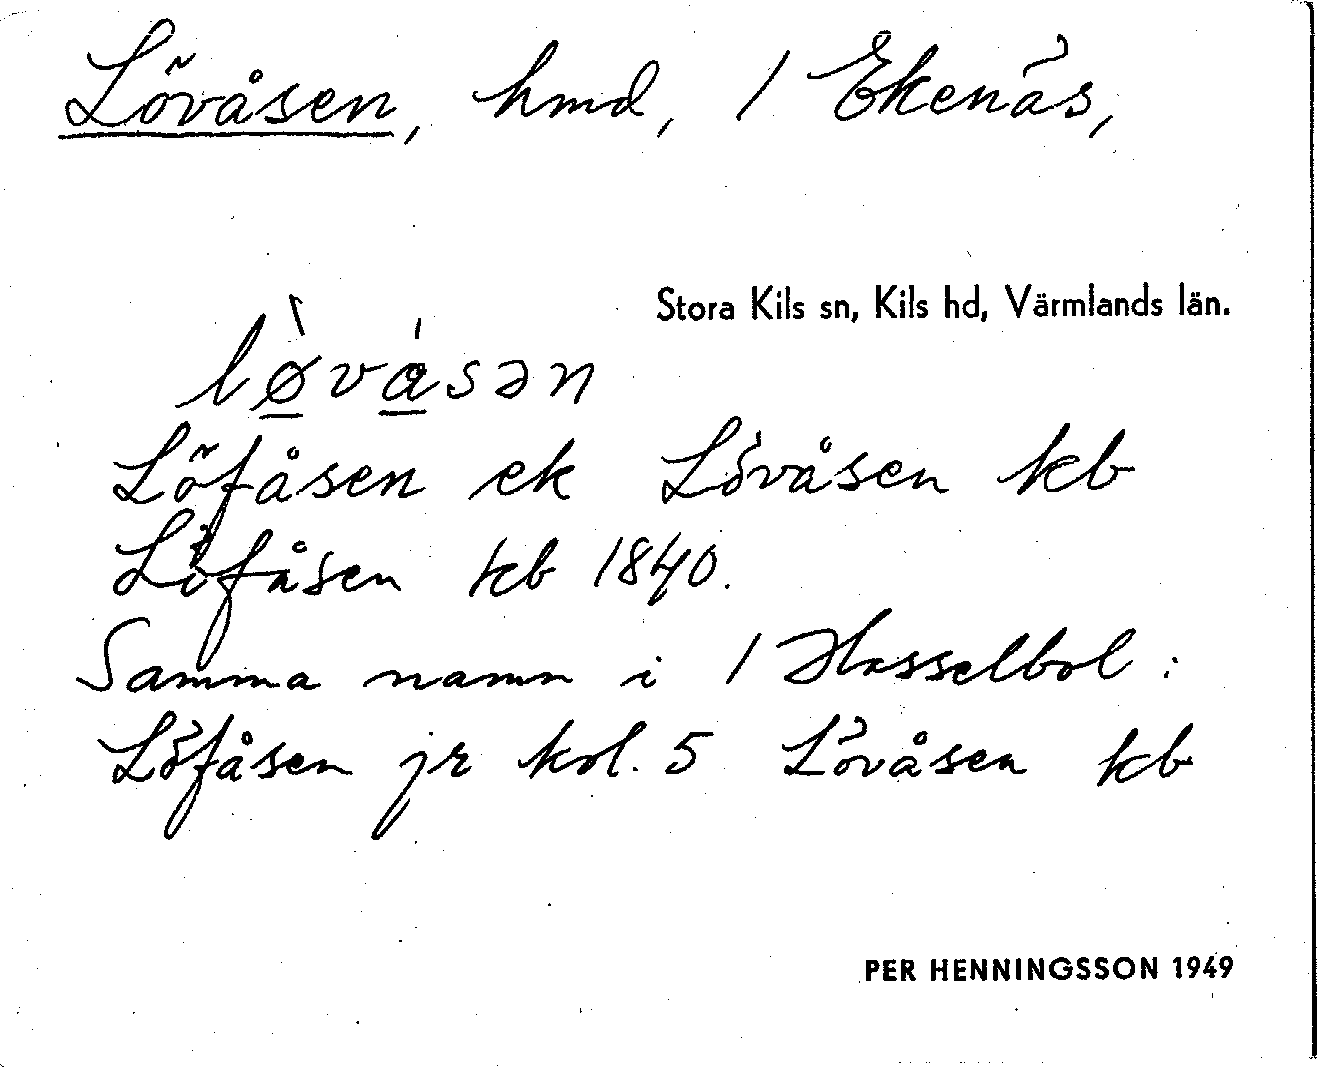 Lövåsen, hmd, 1 Ekenäs,
Stora Kils sn, Kils hd, Värmlands län.
lø̀vásən
Löfåsen ek Lövåsen kb
Löfåsen kb 1840.
Samma namn i 1 Hasselbol:
Löfåsen jr kol. 5 Lövåsen kb
PER HENNINGSSON 1949